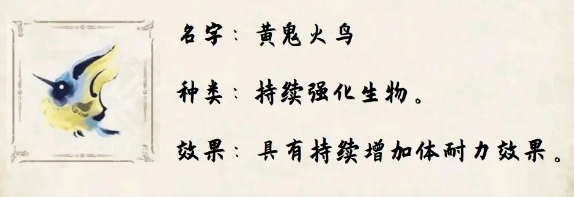 名字：黄鬼火鸟
种类：持续强化生物。
效果：具有持续增加体耐力效果。